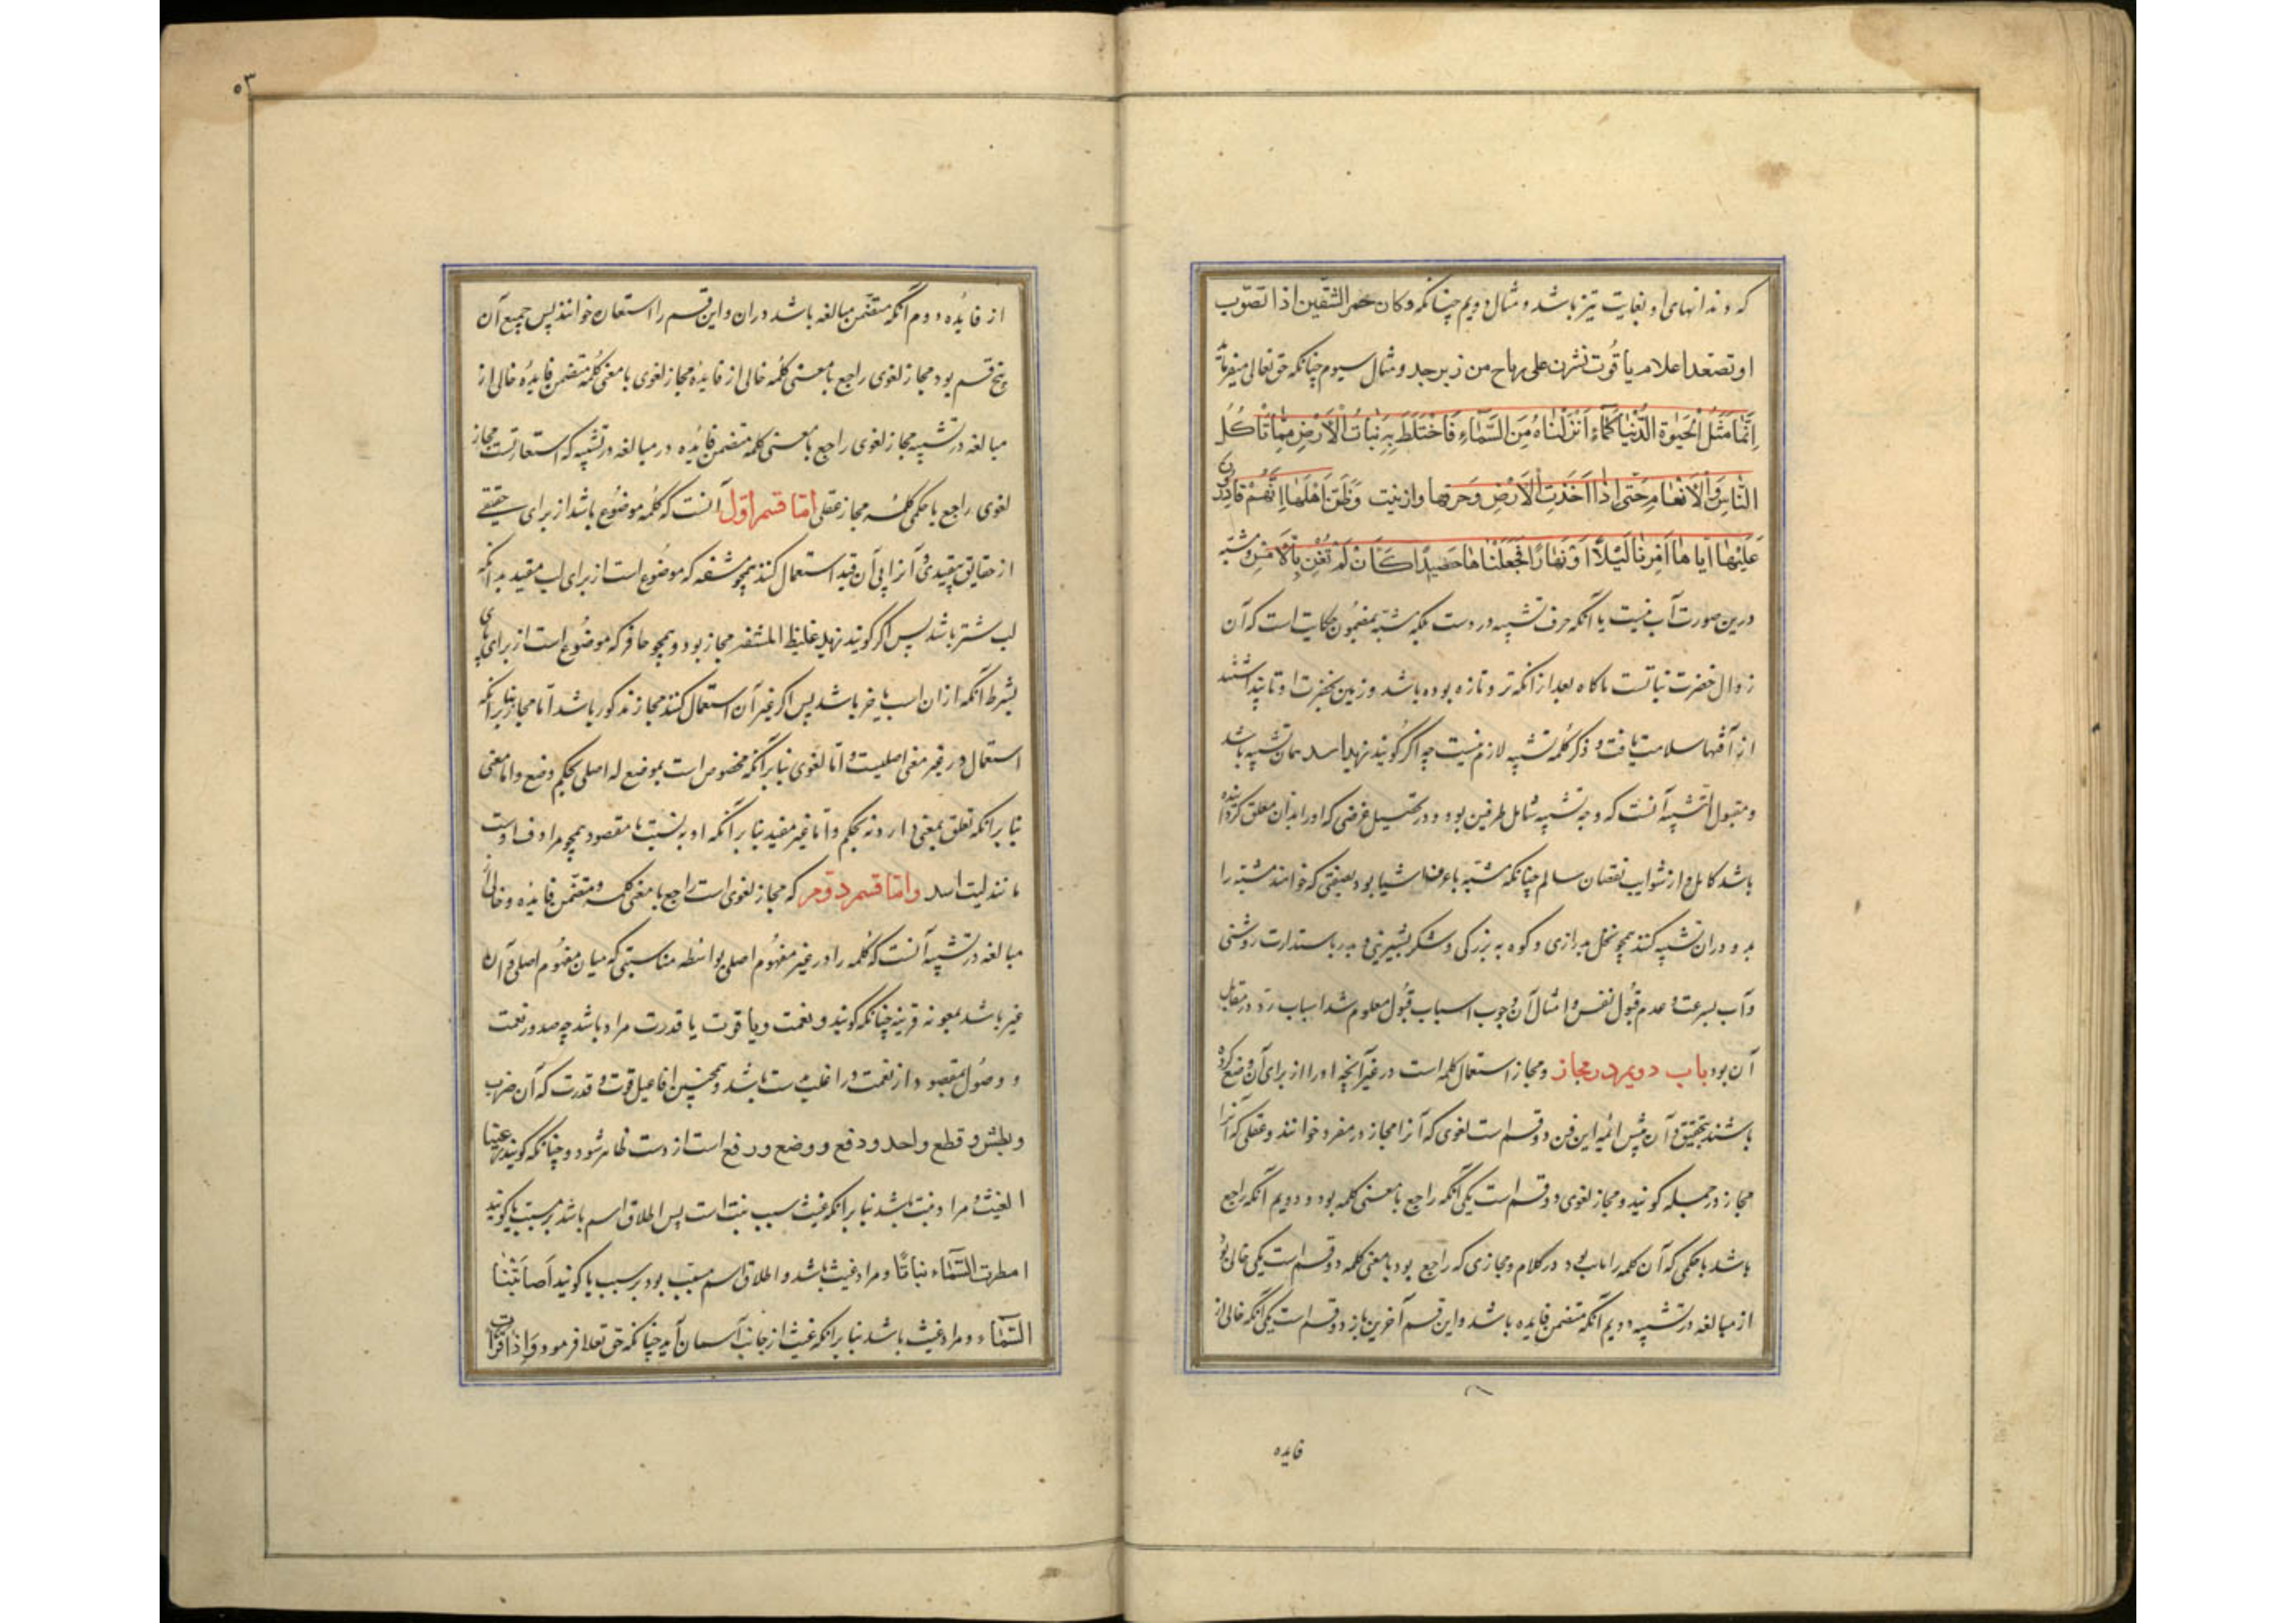 که دندانهای او بغایت تیز باشد و مثال دویم چنانکه وکان محمر الشقیق اذا تصوّب
او تصعد اعلام یاقُوت نشرن علی رماح من زبرجد و مثال سیوم چنانکه حق تعالی میفرماید
اِنَّمَا مَثَلُ الْحَیٰوةِ الدُّنْیَا کَمَاءٍ اَنْزَلْنَاهُ مِنَ السَّمَاءِ فَاخْتَلَطَ بِهِ نَبَاتُ الْاَرْضِ مِمَّا یَاْکُلُ
النَّاسُ وَالْاَنْعَامُ حَتّی اِذَا اَخَذَتِ الْاَرْضُ زخرفها وازینت وَظَنَّ اَهْلُهَا اَنَّهُمْ قَادِرُونَ
عَلَیْهَا اَتاها اَمْرُنَا لَیْلًا اَوْ نَهَارًا فَجَعَلْنَاهَا حَصِیدًا کَاَنْ لَمْ تَغْنَ بِالْاَمْسِ و مشبه
درین صورت آب نیست با آنکه حرف تشبیه در دست بلکه مشبه مضمُون حکایت است که آن
زوال خضرت نباتست ناکاه بعد از انکه تر و تازه بوده باشد و زمین بخضرت او تا پنداشتند
از آفتها سلامت یافت و ذکر کلمه تشبیه لازم نیست چه اگر گویند زید اسد همان تشبیه باشد
و مقبول التشبیه آنست که وجه تشبیه شامل طرفین بود و در تحصیل غرضی که او را بدان معلق کردانیده
باشد کامل و از شوایب نقصان سالم چنانکه مشبه به اعرف اشیا بود بصفتی که خواهند مشبه را
بدو دران تشبیه کنند همچو نخل بدرازی و کوه به بزرکی و شکر بشیرینی و بدر باستدارت و روشنی
و آب بسرعت و عدم قبُول نقش و امثال آن و چون اسباب قبُول معلوم شد اسباب ردّ در مقابل
آن بود باب دویم در مجاز و مجاز استعمال کلمه است در غیر آنچه او را از برای آن وضع کرده
باشند بتحقیق و آن پیش ائمه این فن دو قسم است لغوی که آنرا مجاز در مفرد خوانند و عقلی که آنرا
مجاز در جمله کویند و مجاز لغوی دو قسم است یکی آنکه راجع با معنی کلمه بود و دویم آنکه راجع
باشد با حکمی که آن کلمه را بود در کلام و مجازی که راجع بود با معنی کلمه دو قسم است یکی خالی بود
از مبالغه در تشبیه دویم آنکه متضمن فایده باشد و این قسم آخرین باز دو قسم است یکی آنکه خالی از
فایده
۵۳
از فایده دوم آنکه متضمّن مبالغه باشد دران و این قسم را استعاره خوانند پس جمیع آن
پنج قسم بود مجاز لغوی راجع با معنی کلمه خالی از فایده مجاز لغوی با معنی کلمه متضمن فایده خالی از
مبالغه در تشبیه مجاز لغوی راجع با معنی کلمه متضمن فایده در مبالغه در تشبیه که استعارتست مجاز
لغوی راجع با حکمی کلمه مجاز عقلی امّا قسم اوّل آنست که کلمه موضُوع باشد از برای حقیقتی
از حقایق بقیدی و آنرا بی آن قید استعمال کنند همچو مشفر که موضُوع است از برای لب مقید بدانکه
لب شتر باشد پس اگر کویند زید غلیظ المشفر مجاز بود و همچو حافر که موضُوع است از برای پای
بشرط آنکه از ان اسب یا خر باشد پس اگر غیر آن استعمال کنند مجاز مذکور باشد اما مجاز بنابرانکه
استعمال در غیر معنی اصلیست و اما لغوی بنابر آنکه مخصوص است بموضع له اصلی بحکم وضع و اما معنی
بنابرانکه تعلق بمعنی دارد نه بحکم و اما غیر مفید بنابر آنکه او به نسبت با مقصود همچو مرادف اوست
مانند لیث اسد و امّا قسم دوّم که مجاز لغوی است راجع با معنی کلمه و متضمّن فایده و خالی از
مبالغه در تشبیه آنست که کلمه را در غیر مفهُوم اصلی بواسطه مناسبتی که میان مفهُوم اصلی و آن
غیر باشد بمعونه قرینه چنانکه کویند و نعمت و یا قوت یا قدرت مراد باشد چه صدور نعمت
و وصُول بمقصود از نعمت در اغلب بدست باشد و همچنین افاعیل قوت و قدرت که آن ضرب
و بطش و قطع و اخذ و دفع و وضع و رفع است از دست ظاهر شود و چنانکه کویند رعینا
الغیث و مراد نبت باشد بنابرانکه غیث سبب نبت است پس اطلاق اسم باشد بر مسبّب یا کویند
امطرت السّماء نباتًا و مراد غیث باشد و اطلاق اسم مسبّب بود بر سبب یا کویند اَصابَتْنا
السّماء و مراد غیث باشد بنابرانکه غیث از جانب آسمان آید چنانکه حق تعالا فرمود وَاِذا قَرَاْتَ